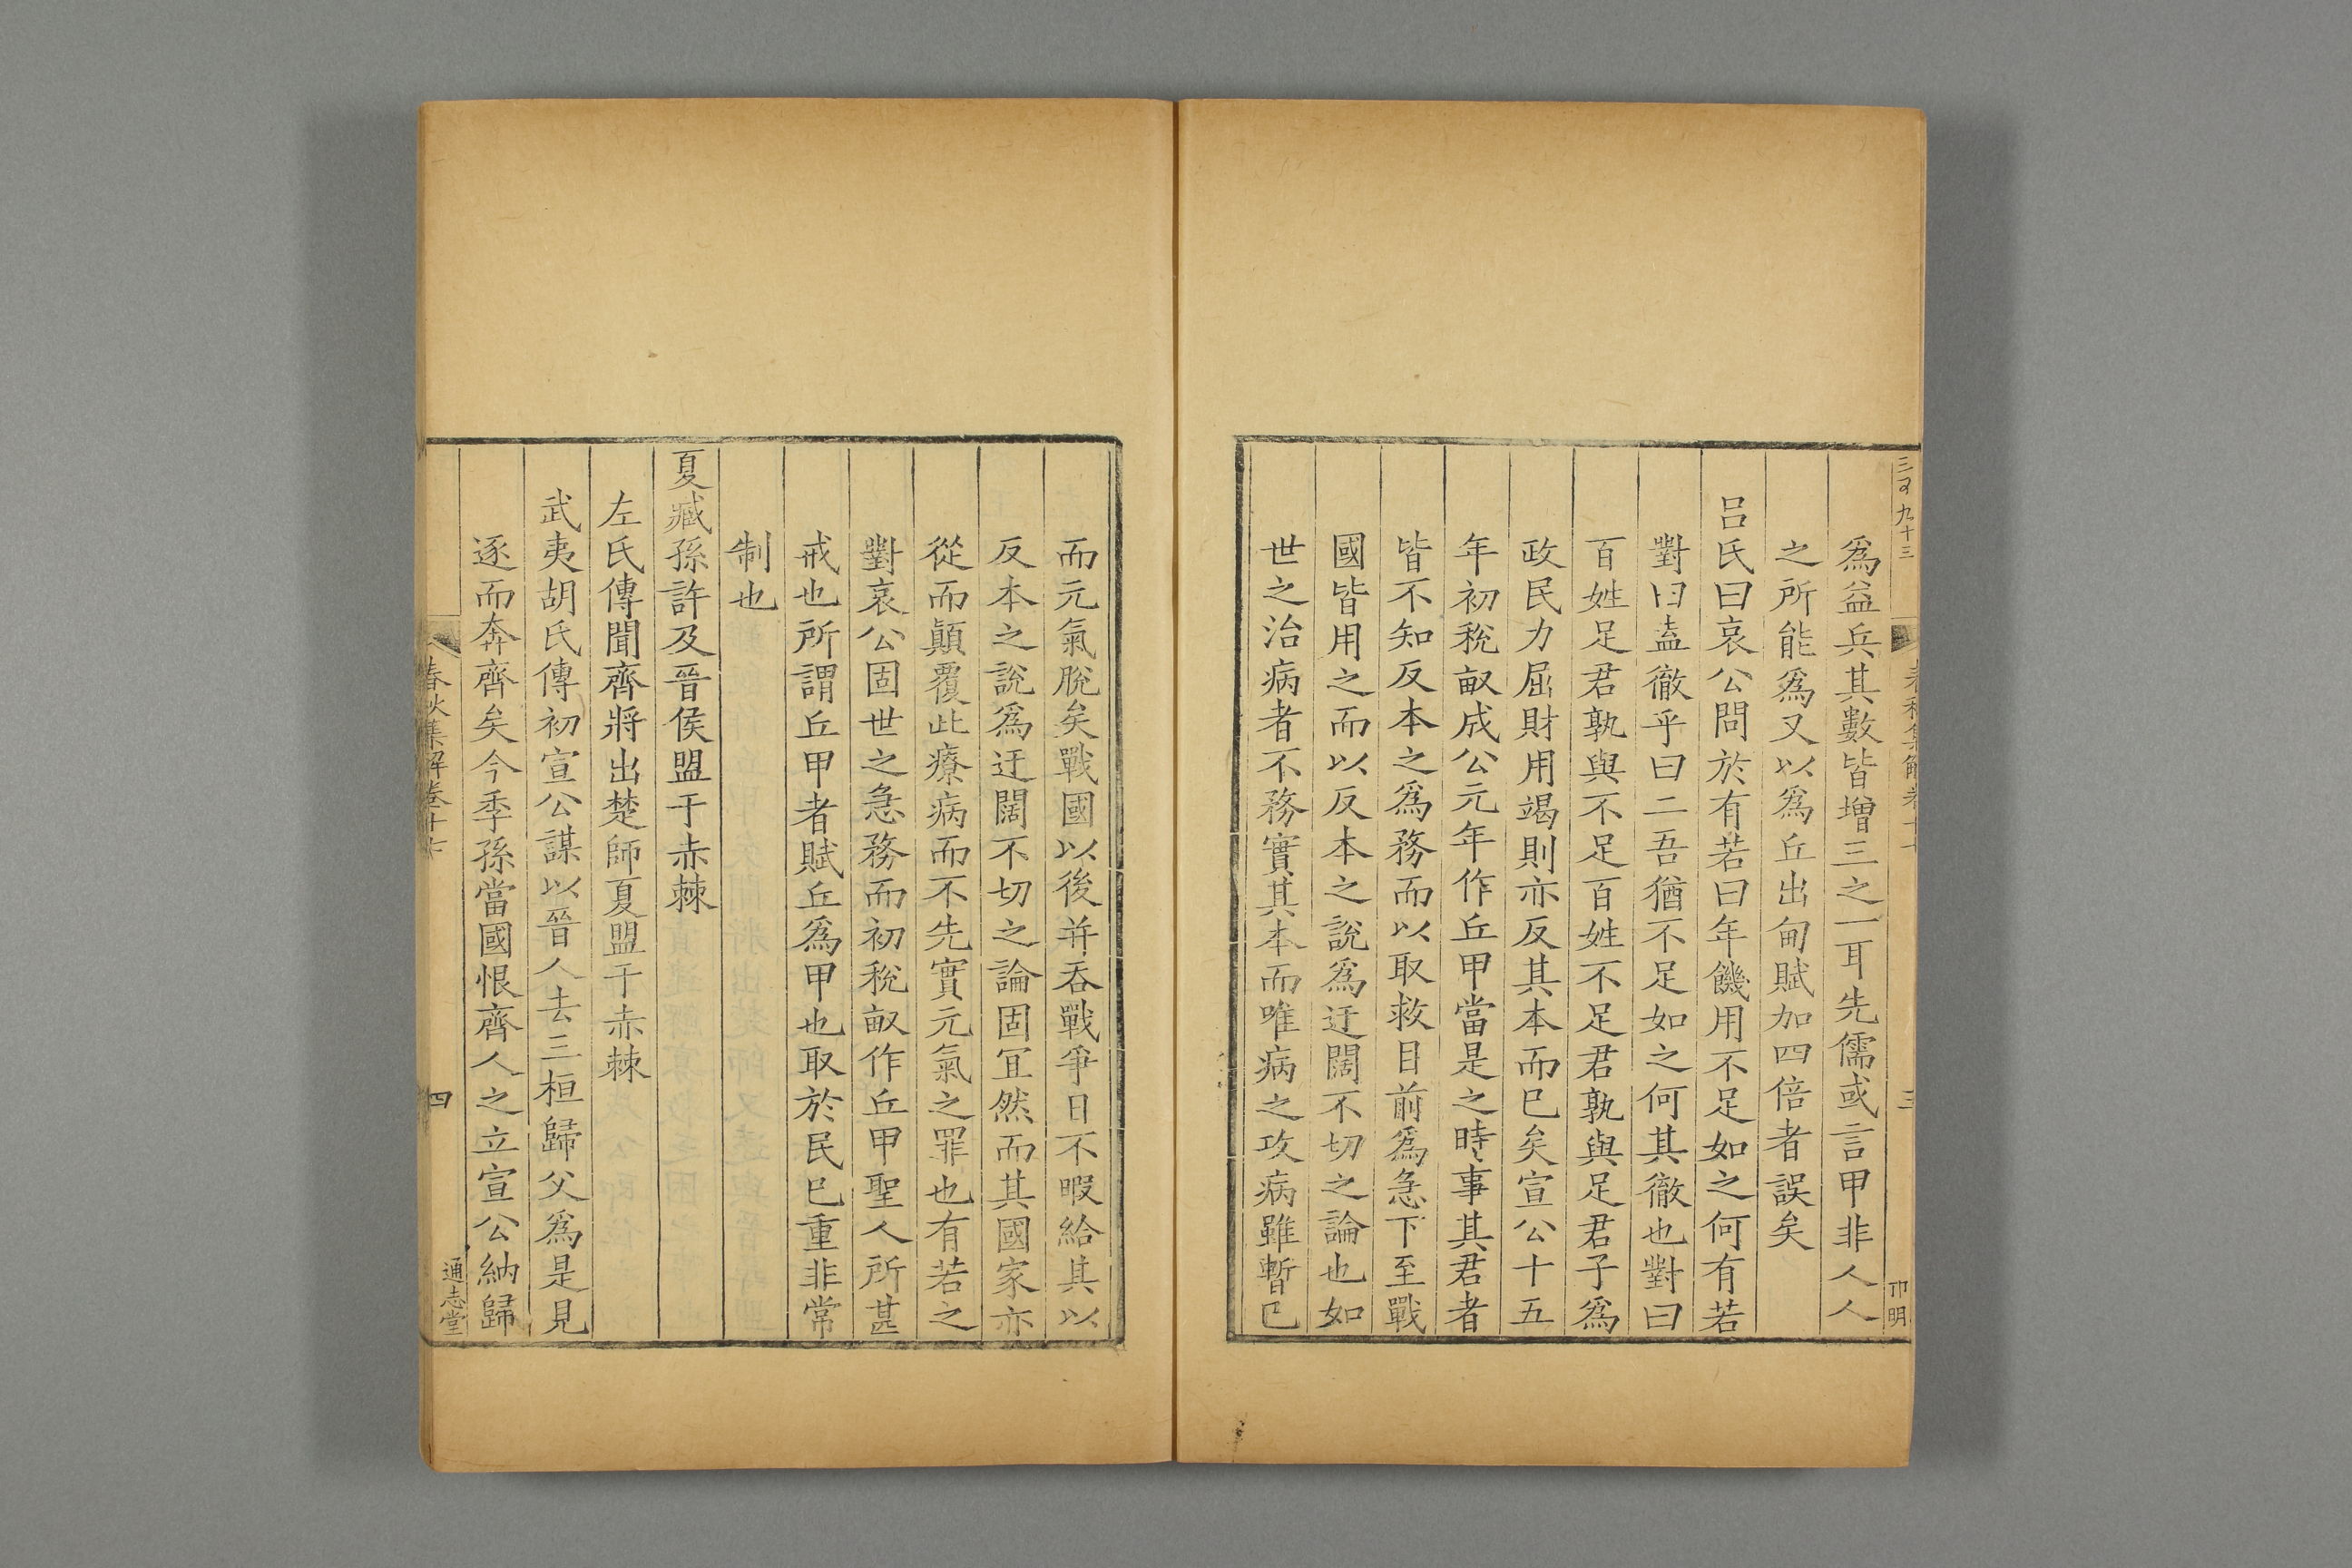 爲益兵其數皆增三之一耳先儒或言甲非人人
之所能爲又以爲丘出甸賦加四倍者誤矣
呂氏曰哀公問於有若曰年饑用不足如之何有若
對曰盍徹乎曰二吾猶不足如之何其徹也對曰
百姓足君孰與不足百姓不足君孰與足君子爲
政民力屈財用竭則亦反其本而已矣宣公十五
年初稅畝成公元年作丘甲當是之時事其君者
皆不知反本之爲務而以取救目前爲急下至戰
國皆用之而以反本之說爲迂闊不切之論也如
世之治病者不務實其本而唯病之攻病雖暫已
而元氣脫矣戰國以後并吞戰爭日不暇給其以
反本之說爲迂闊不切之論固宜然而其國家亦
從而顚覆此療病而不先實元氣之罪也有若之
對哀公固世之急務而初稅畝作丘甲聖人所甚
戒也所謂丘甲者賦丘爲甲也取於民已重非常
制也
夏臧孫許及晉侯盟于赤棘
左氏傳聞齊將出楚師夏盟于赤棘
武夷胡氏傳初宣公謀以晉人去三桓歸父爲是見
逐而奔齊矣今季孫當國恨齊人之立宣公納歸
春秋集解卷十七
四
通志堂